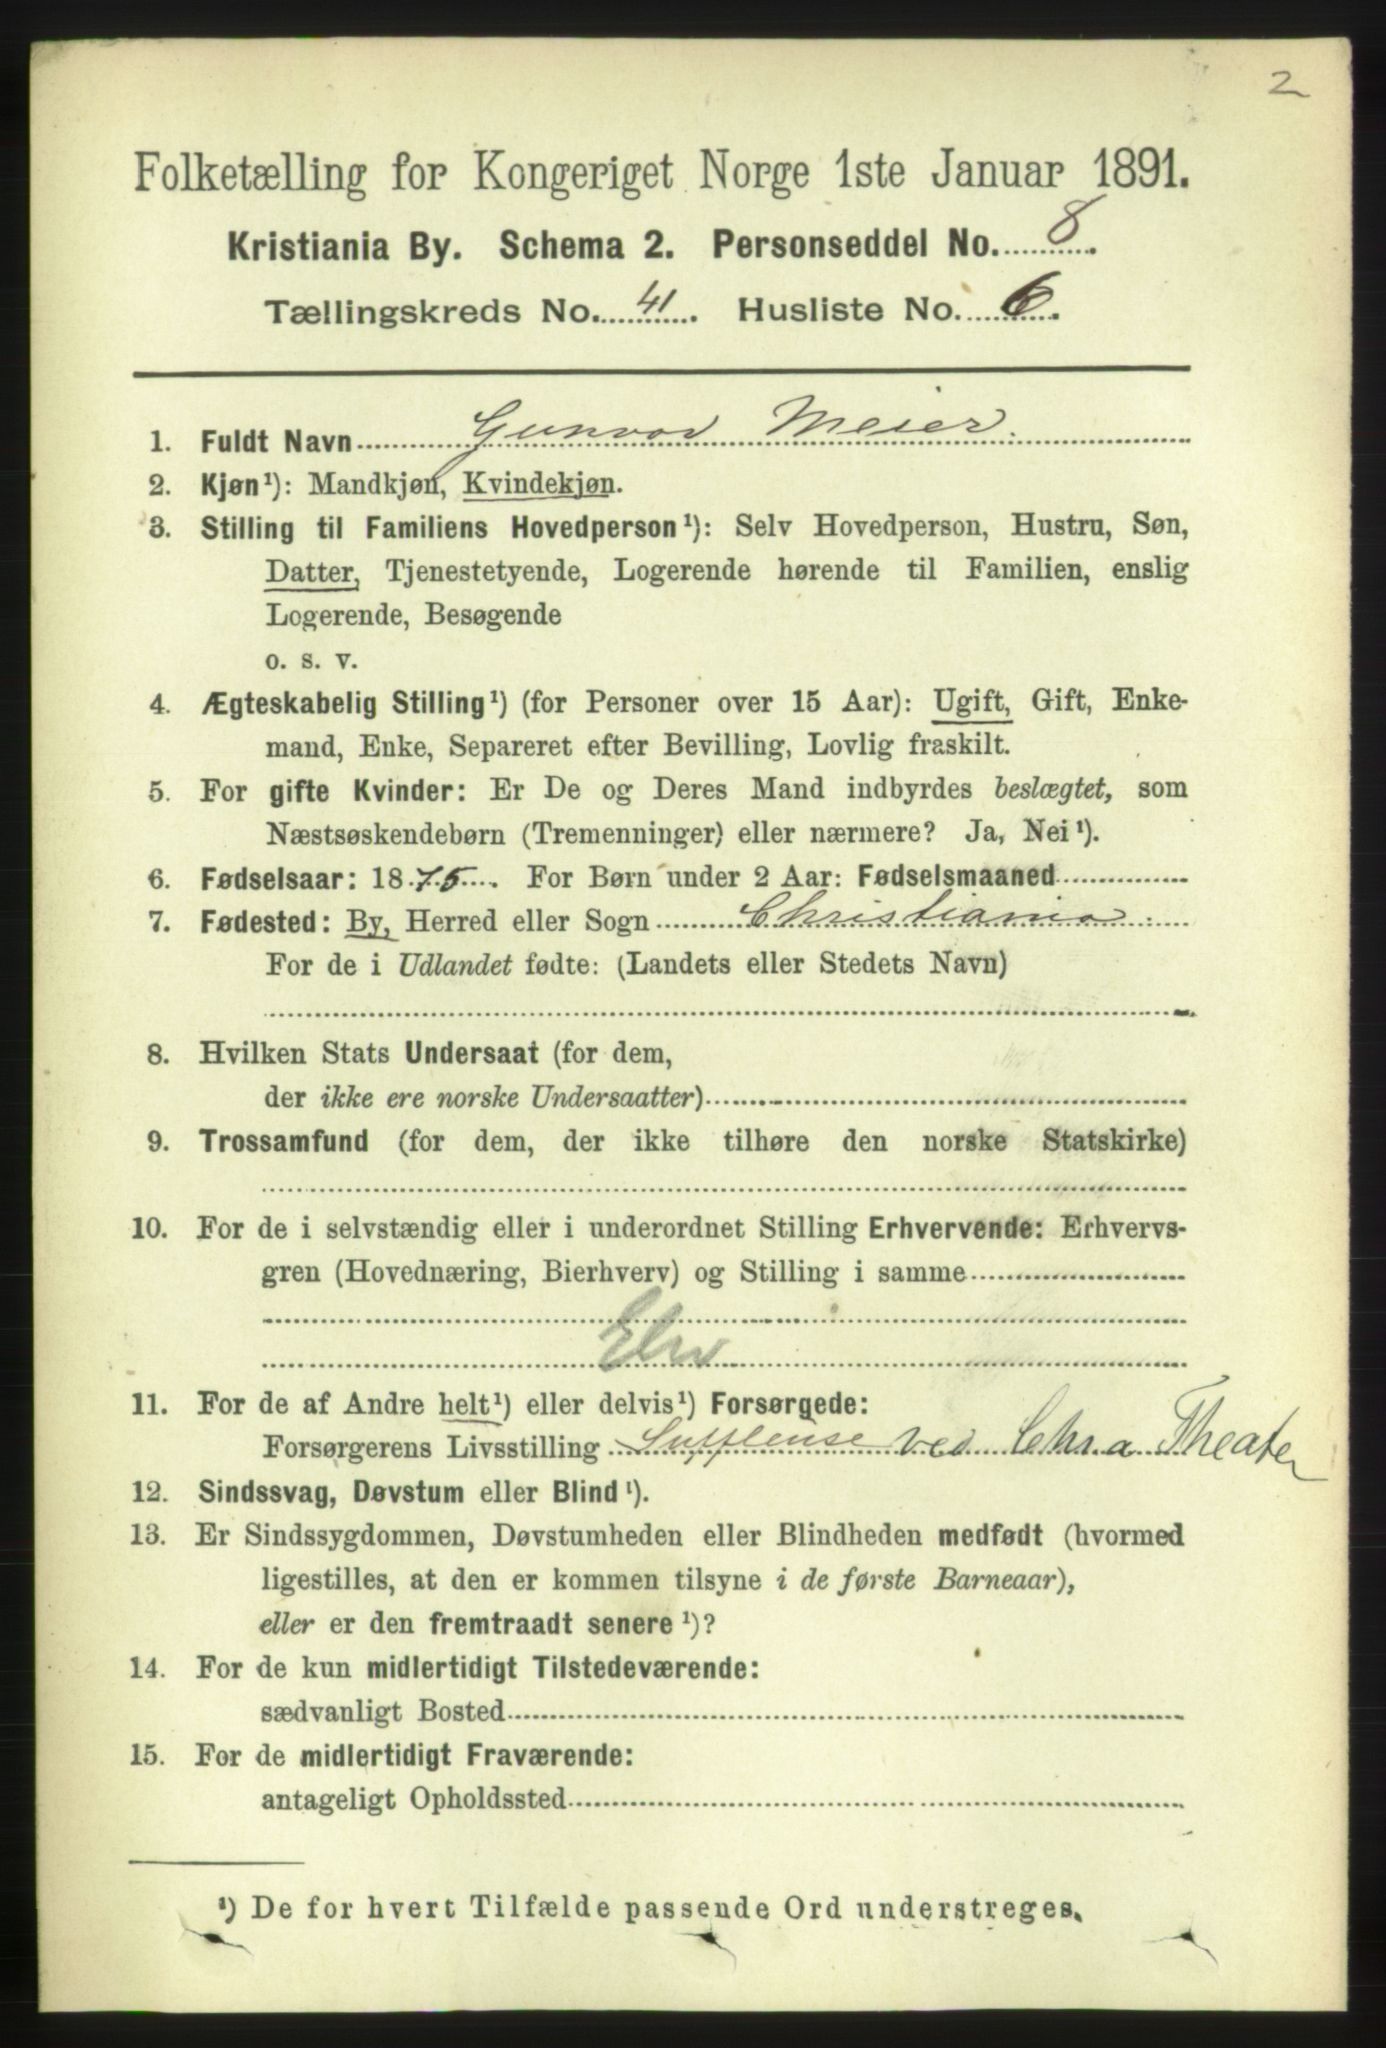 2
Folketælling for Kongeriget Norge 1ste Januar 1891.
Kristiania By. Schema 2. Personseddel No. 8.
Tællingskreds No. 41. Husliste No. 6.
1. Fuldt Navn Gunvor Meier.
2. Kjøn¹): Mandkjøn, Kvindekjøn.
3. Stilling til Familiens Hovedperson¹): Selv Hovedperson, Hustru, Søn,
Datter, Tjenestetyende, Logerende hørende til Familien, enslig
Logerende, Besøgende
o. s. v.
4. Ægteskabelig Stilling¹) (for Personer over 15 Aar): Ugift, Gift, Enke-
mand, Enke, Separeret efter Bevilling, Lovlig fraskilt.
5. For gifte Kvinder: Er De og Deres Mand indbyrdes beslægtet, som
Næstsøskendebørn (Tremenninger) eller nærmere? Ja, Nei¹).
6. Fødselsaar: 1875. For Børn under 2 Aar: Fødselsmaaned
7. Fødested: By, Herred eller Sogn Christiania
For de i Udlandet fødte: (Landets eller Stedets Navn)
8. Hvilken Stats Undersaat (for dem,
der ikke ere norske Undersaatter)
9. Trossamfund (for dem, der ikke tilhøre den norske Statskirke)
10. For de i selvstændig eller i underordnet Stilling Erhvervende: Erhvervs-
gren (Hovednæring, Bierhverv) og Stilling i samme
11. For de af Andre helt¹) eller delvis¹) Forsørgede:
Forsørgerens Livsstilling Suffleuse ved Chra Theater
12. Sindssvag, Døvstum eller Blind¹).
13. Er Sindssygdommen, Døvstumheden eller Blindheden medfødt (hvormed
ligestilles, at den er kommen tilsyne i de første Barneaar),
eller er den fremtraadt senere¹)?
14. For de kun midlertidigt Tilstedeværende:
sædvanligt Bosted
15. For de midlertidigt Fraværende:
antageligt Opholdssted
¹) De for hvert Tilfælde passende Ord understreges.